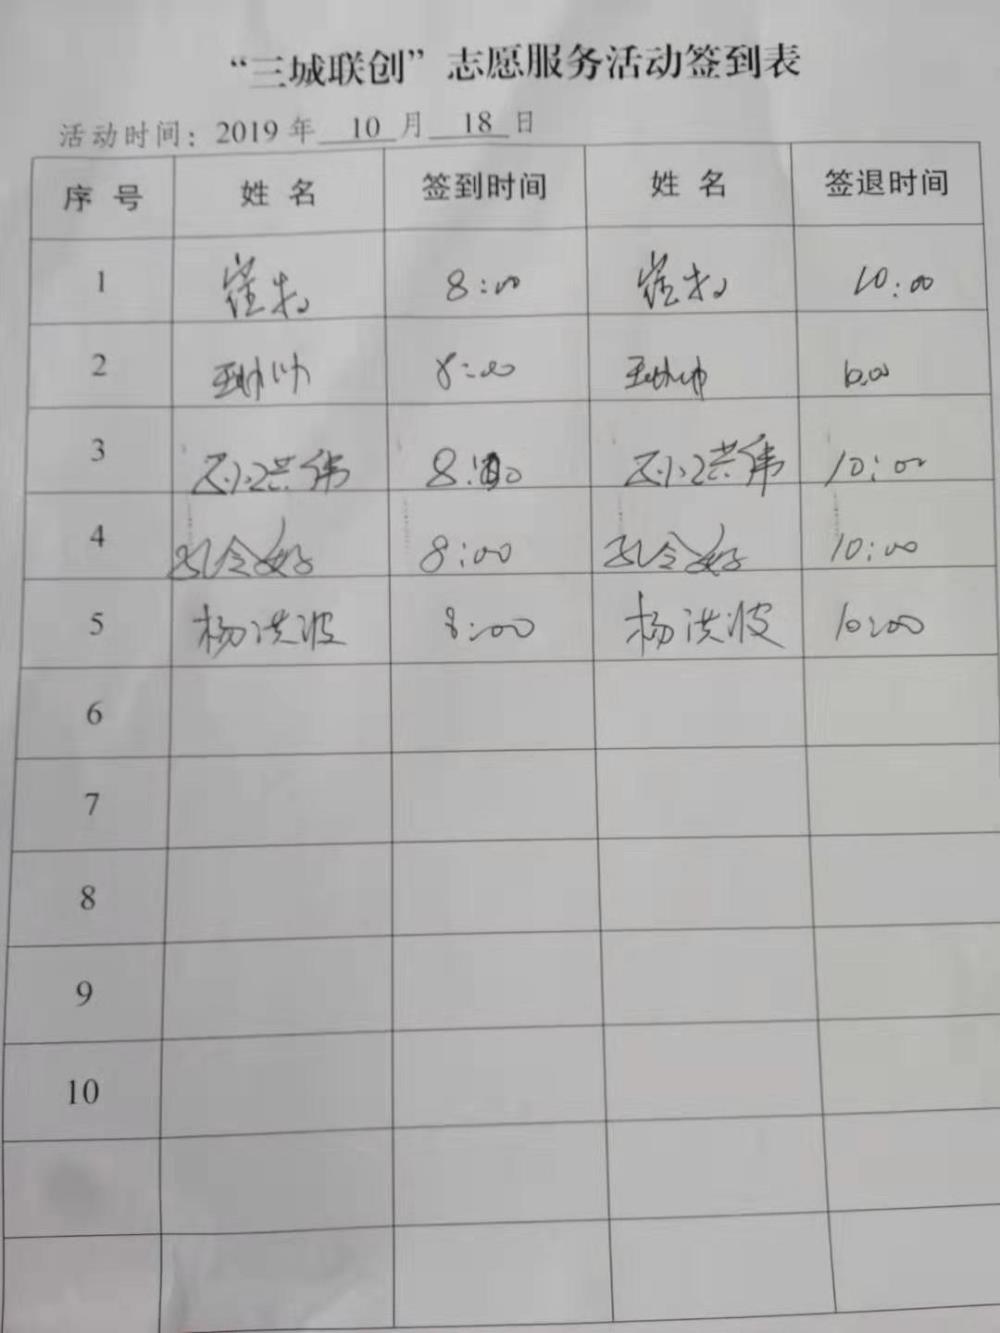 “三城联创”志愿服务活动签到表
活动时间：2019年 10 月 18 日
序号 姓名 签到时间 姓名 签退时间
1 崔 8:00 崔 10:00
2 8:00 10:00
3 洪伟 8:00 洪伟 10:00
4 孔令好 8:00 孔令好 10:00
5 杨洪波 8:00 杨洪波 10:00
6
7
8
9
10